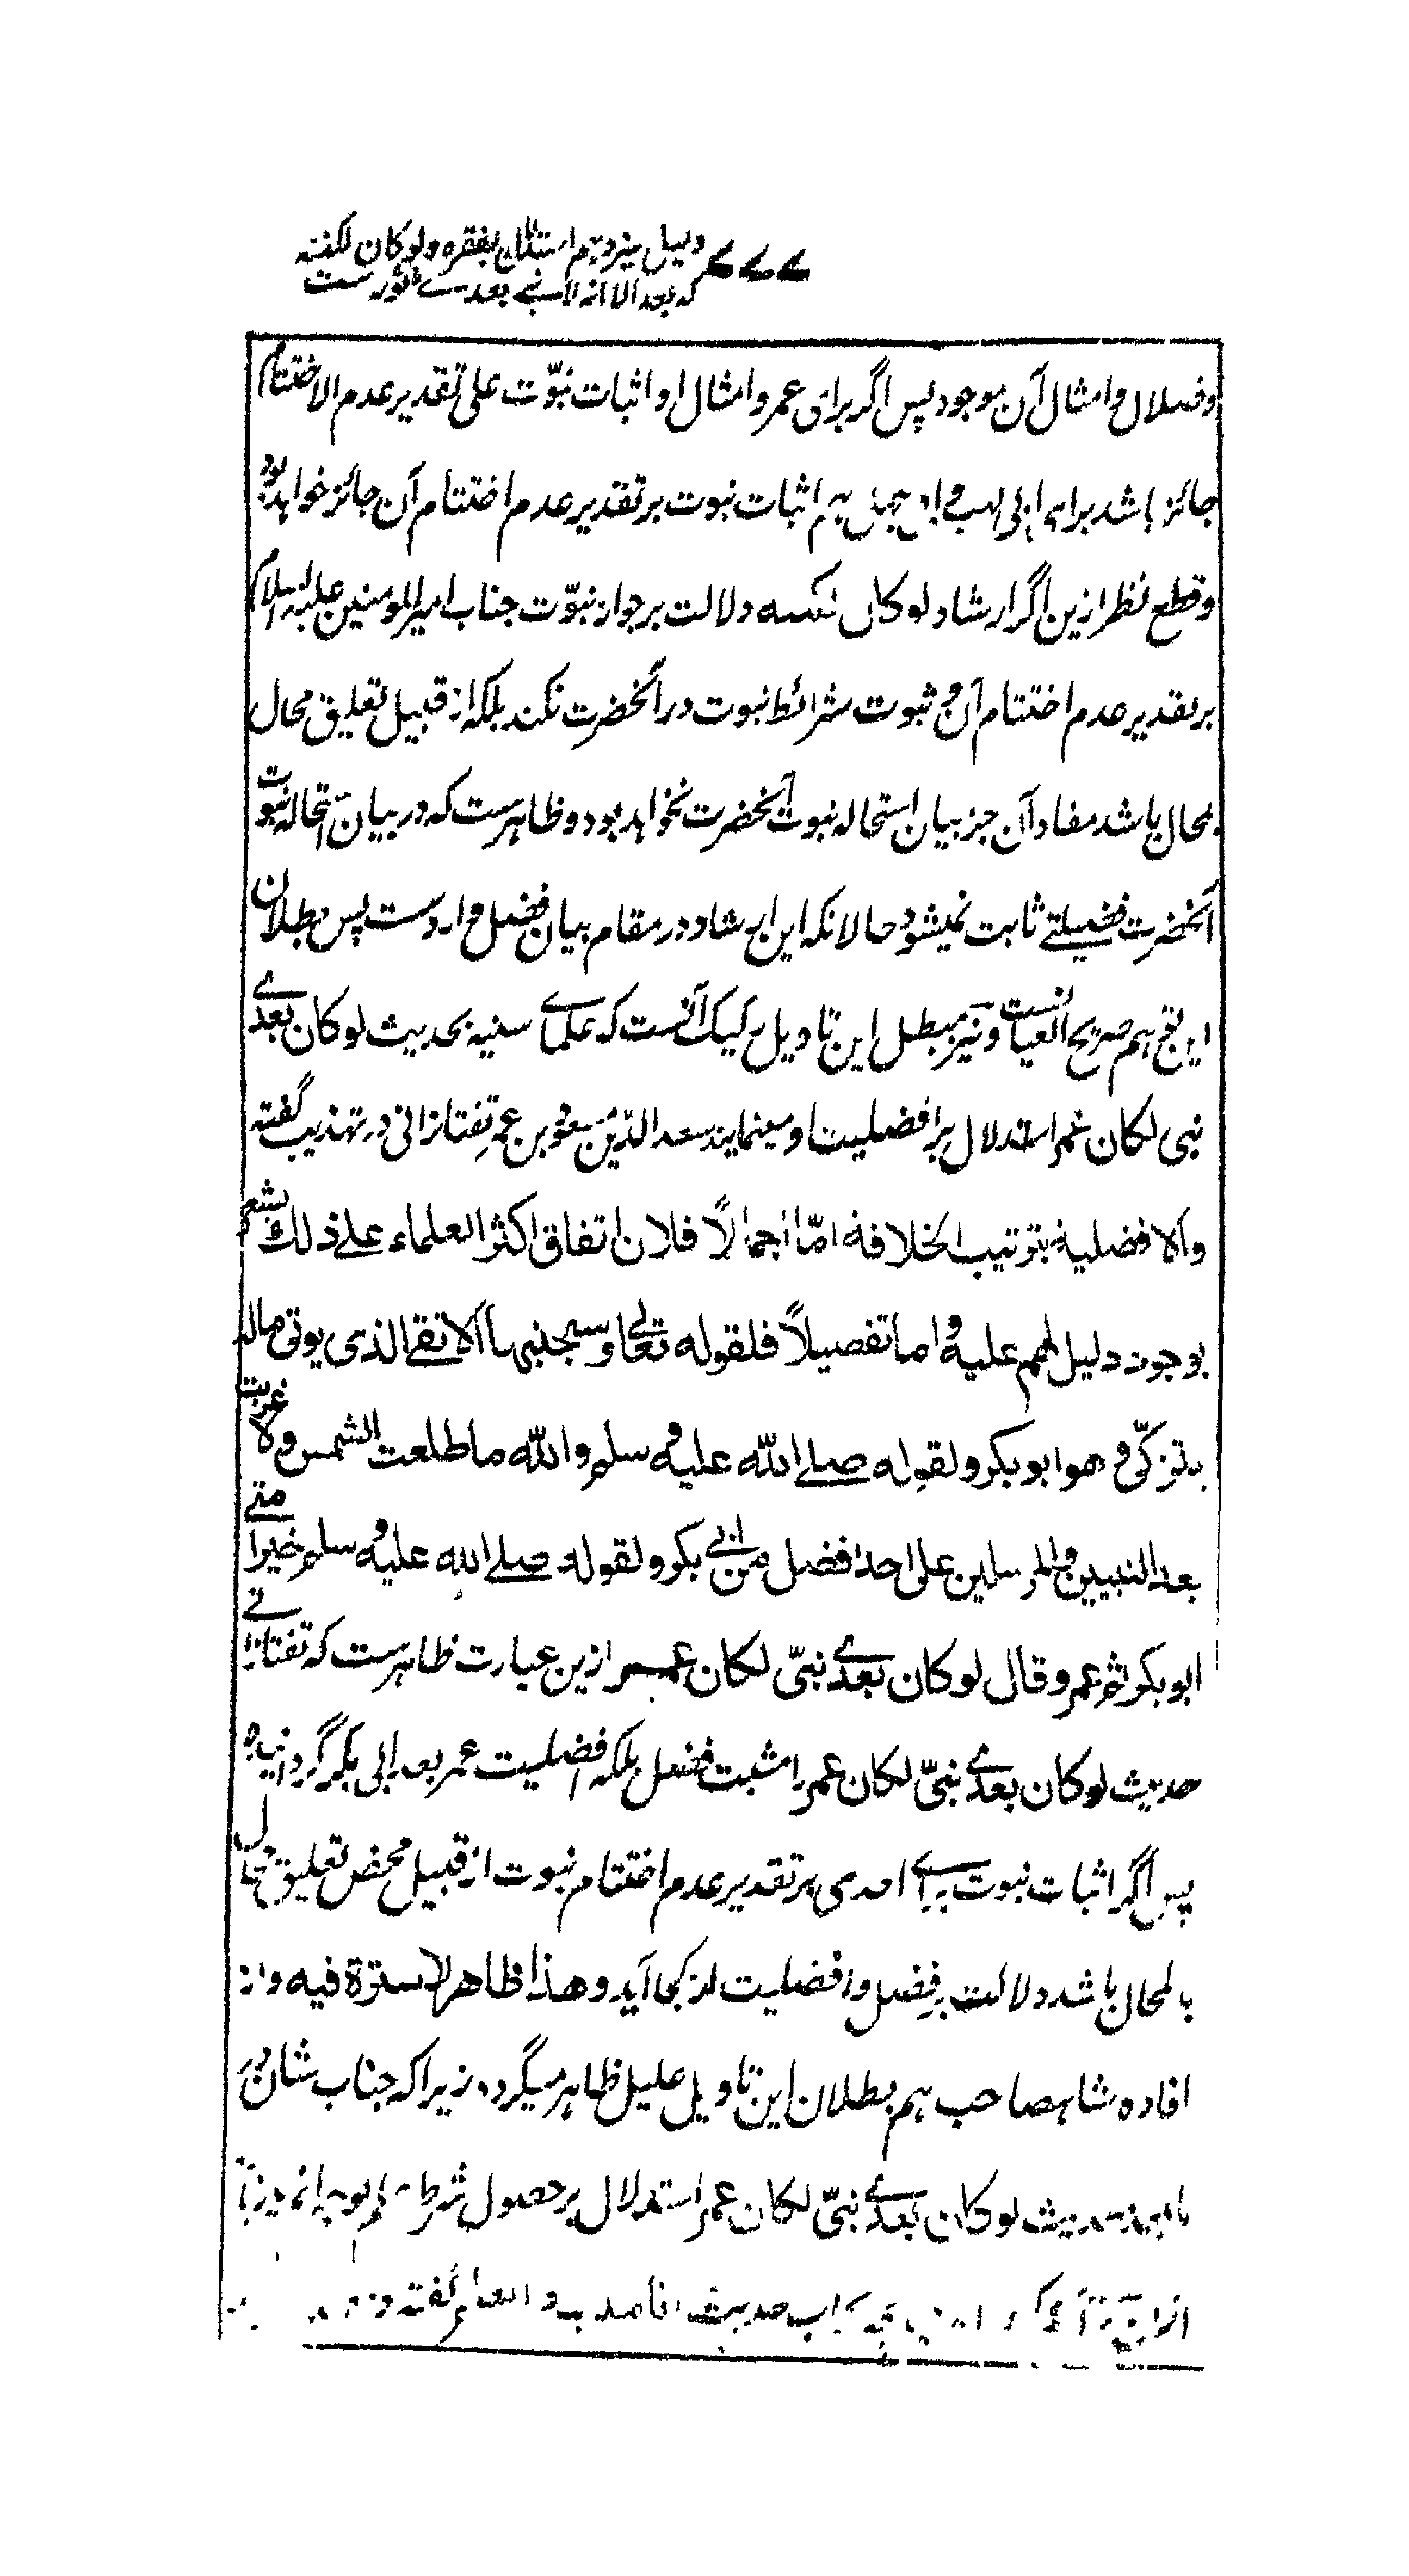 دلیل سیزدہم استدلال بفقرہ ولو کان لکنتہ
کہ بعد الا انہ لا نبے بعدے ماثور ست
وضلال و امثال آن موجود پس اگر برای عمر و امثال او اثبات نبوّت علی تقدیر عدم الاختتام
جائز باشد برای ابی لہب و ابی جہل ہم اثبات نبوت بر تقدیر عدم اختتام آن جائز خواہد بود
و قطع نظر ازین اگر ارشاد لو کان لکنتہ دلالت بر جواز نبوّت جناب امیر المومنین علیہ السلام
بر تقدیر عدم اختتام آن و ثبوت شرائط نبوت در آنحضرت نکند بلکہ از قبیل تعلیق محال
بمحال باشد مفاد آن جز بیان استحالہ نبوت آنحضرت نخواہد بود و ظاہرست کہ در بیان استحالہ نبوت
آنحضرت فضیلتے ثابت نمیشود حالانکہ این ارشاد در مقام بیان فضل وارد ست پس بطلان
این ہم صریح العیانست و نیز مبطل این تاویل رکیک آنست کہ علماے سنیہ بحدیث لو کان بعدے
نبی لکان عمر استدلال بر افضلیت او مینمایند سعد الدّین مسعود بن عمر تفتازانی در تہذیب گفتہ
والافضلیة بترتیب الخلافة امّا اجمالاً فلان اتفاق اکثر العلماء علے ذلك یشعر
بوجود دلیل لهم علیه و اما تفصیلاً فلقوله تعالے وسیجنبها الاتقے الذی یوتی ماله
یتزکّی و هو ابو بکر ولقوله صلے اللّٰه علیه و سلم واللّٰه ما طلعت الشمس ولا غربت
بعد النبیین والمرسلین علی احد افضل من ابے بکر ولقوله صلے الله علیه و سلم خیر امتے
ابو بکر ثم عمر و قال لو کان بعدے نبیّ لکان عمر ازین عبارت ظاہرست کہ تفتازانے
حدیث لو کان بعدے نبیّ لکان عمر را مثبت فضل بلکہ افضلیت عمر بعد ابی بکر گردانیدہ
پس اگر اثبات نبوت براے احدی بر تقدیر عدم اختتام نبوت از قبیل محض تعلیق محال
بالمحال باشد دلالت بر فضل و افضلیت از کجا آید وهذا ظاهر لا سترة فیه و از
افادہ شاہصاحب ہم بطلان این تاویل علیل ظاہر میگردد زیرا کہ جناب شان در
حدیث لو کان بعدے نبیّ لکان عمر استدلال بر حصول شرط
حدیث انا مدینة العلم گفتہ